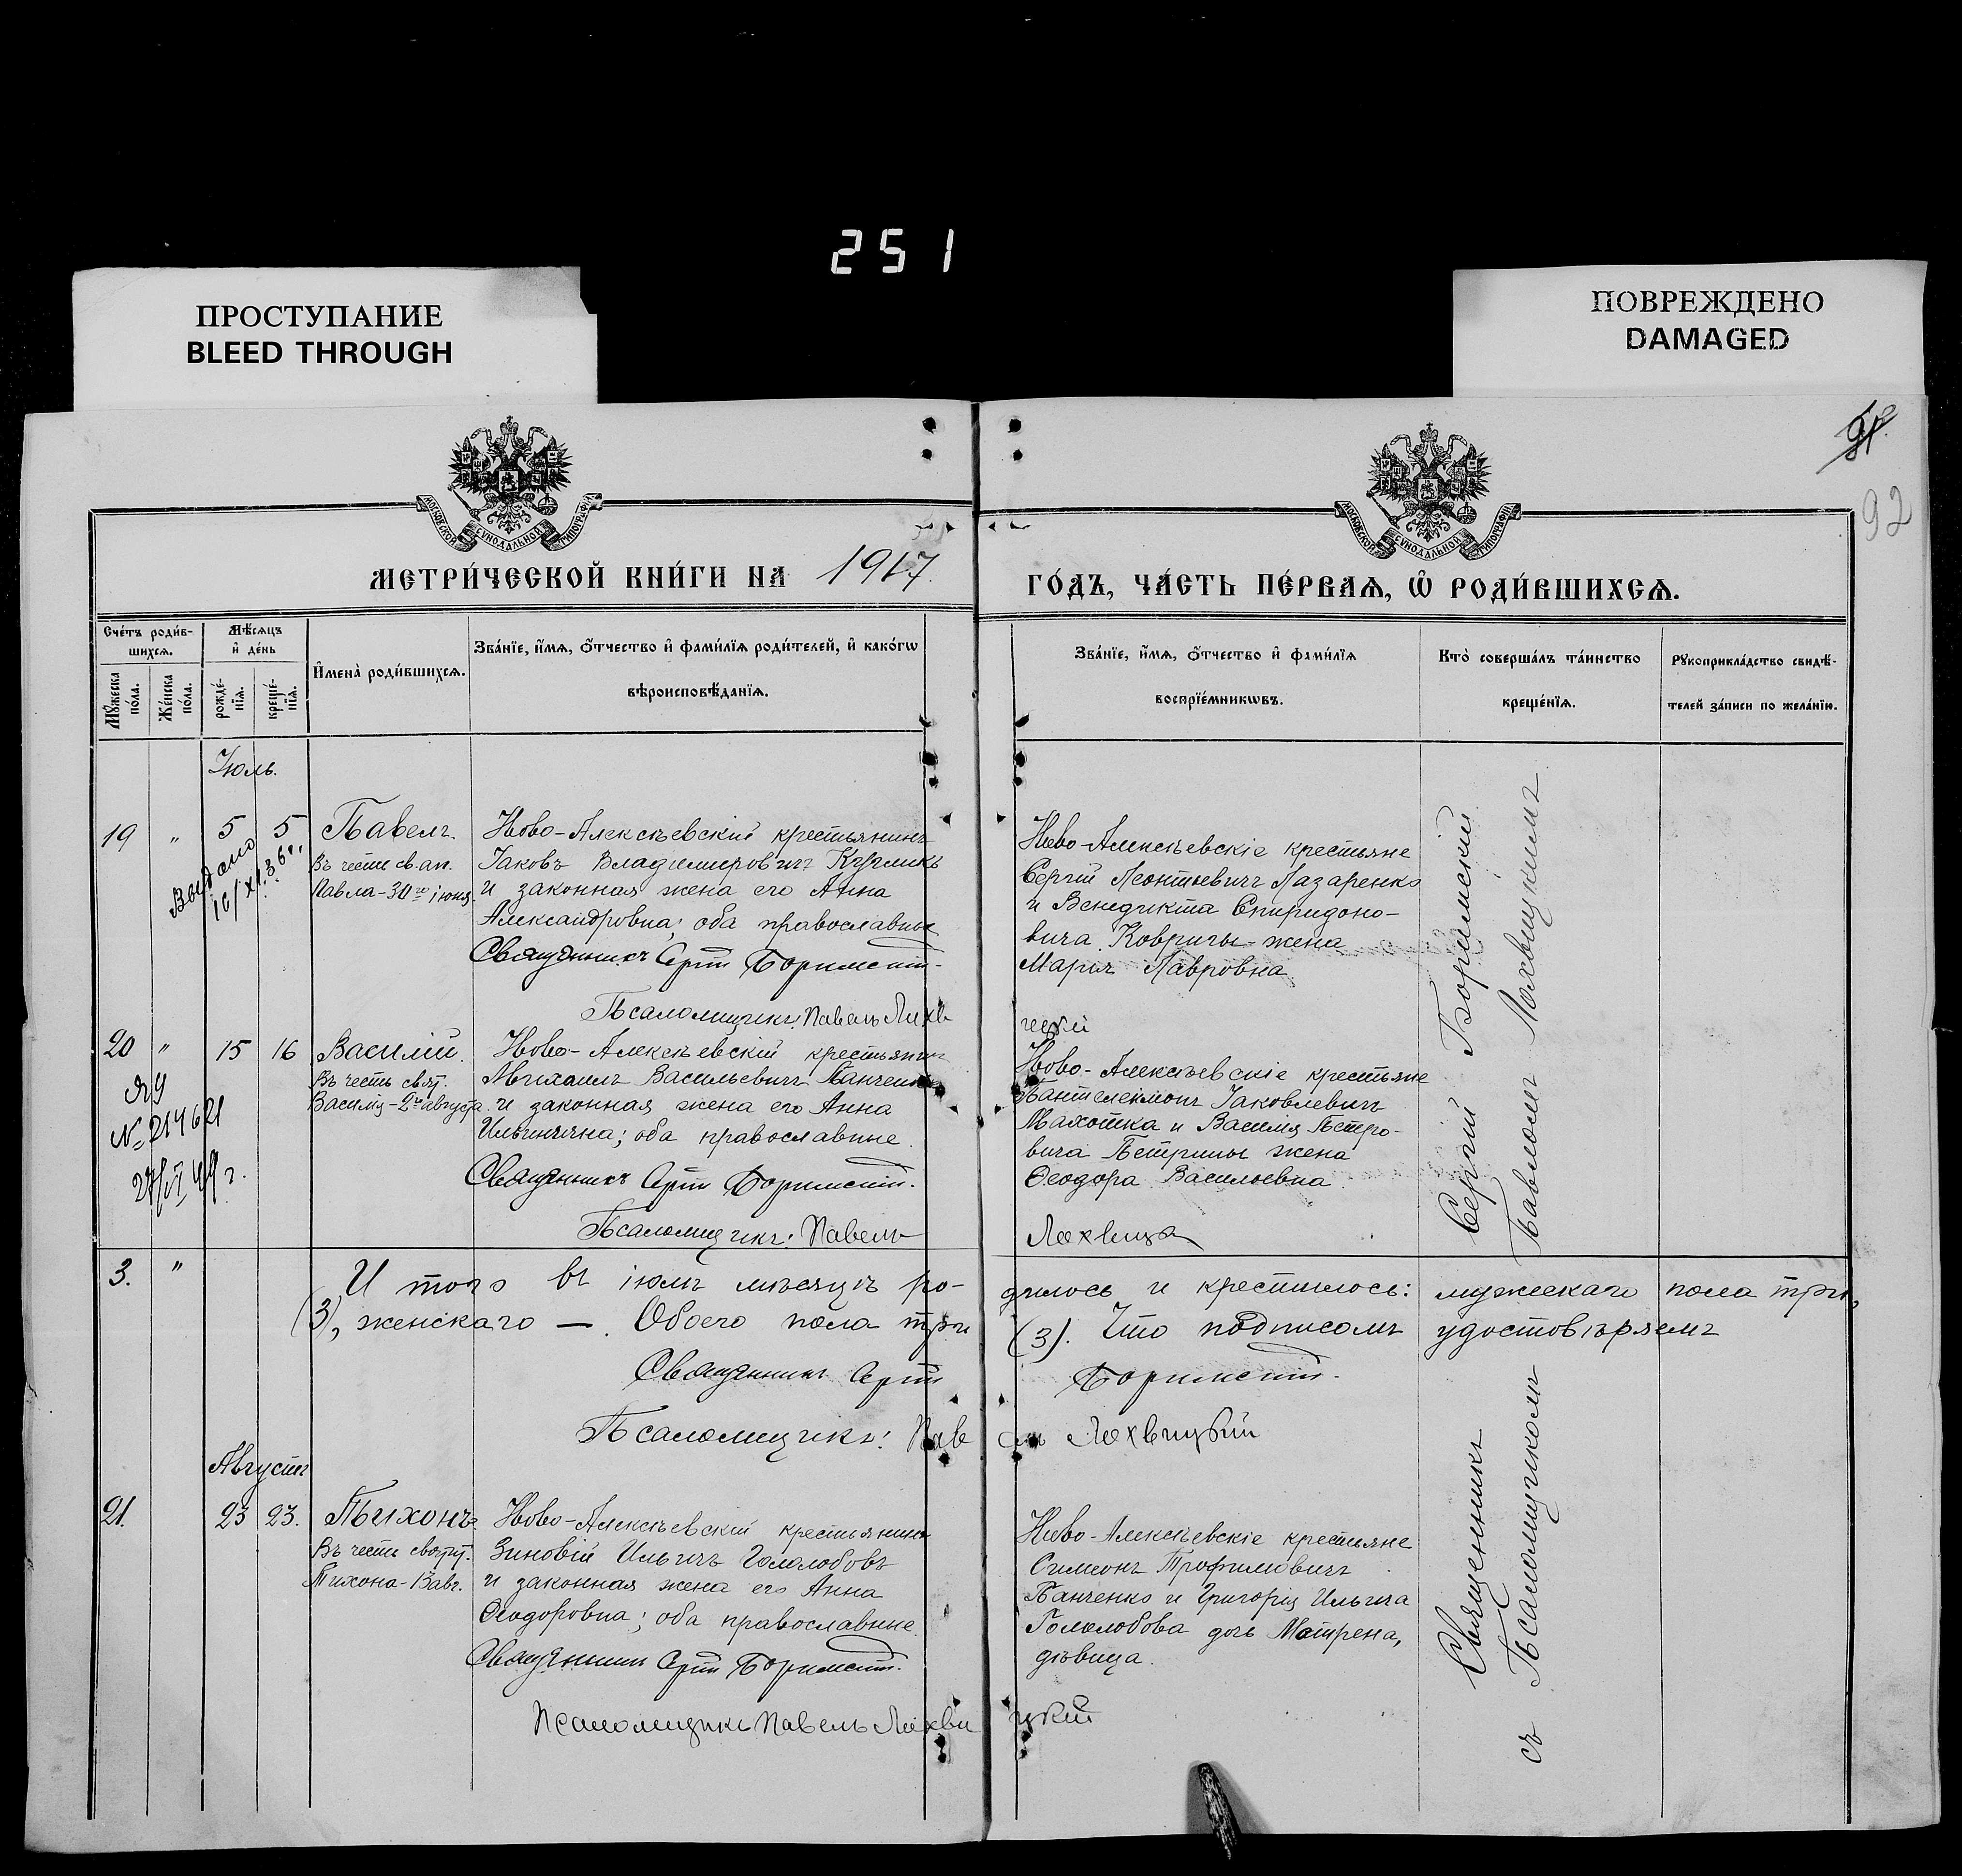 251
ПРОСТУПАНИЕ
BLEED THROUGH
ПОВРЕЖДЕНО
DAMAGED
92
МОСКОВСКОЙ СУНОДАЛЬНОЙ ТИПОГРАФІИ
МОСКОВСКОЙ СУНОДАЛЬНОЙ ТИПОГРАФІИ
МЕТРИ́ЧЕСКОЙ КНИ́ГИ НА 1917.
ГО́ДЪ, ЧА́СТЬ ПЕ́РВАѦ, Ѡ҆ РОДИ́ВШИХСѦ.
Сче́тъ роди́в-
шихсѧ.
Мꙋ́жеска по́ла.
Же́нска по́ла.
Мѣ́сѧцъ
и҆ де́нь
рожде́-
нїѧ.
креще́-
нїѧ.
И҆мена̀ роди́вшихсѧ.
Зва́нїе, и҆́мѧ, ѻ҆́тчество и҆ фами́лїѧ роди́телей, и҆ како́гѡ
вѣроисповѣ́данїѧ.
Зва́нїе, и҆́мѧ, ѻ҆́тчество и҆ фами́лїѧ
воспрїе́мникѡвъ.
Кто̀ соверша́лъ та́инство
креще́нїѧ.
Рꙋкоприкла́дство свидѣ́-
телей за́писи по жела́нїю.
Іюль.
19 " 5 5 Павелъ.
Въ честь св. ап.
Павла - 30го іюня.
Выдано
Ново-Алексѣевскій крестьянинъ
Іаковъ Владиміровичъ
и законная жена его Анна
Александровна; оба православные
Священникъ Сергій Боримскій.
Псаломщикъ: Павелъ Лохв
ицкій
Ново-Алексѣевскіе крестьяне
Сергій Леонтьевичъ Лазаренко
и Венедикта Спиридоно-
вича Ковриги жена
Марія Лавровна
20 " 15 16 Василій.
Въ честь свят.
Василія - 2го августа
Ново-Алексѣевскій крестьянинъ
Михаилъ Васильевичъ Панченко
и законная жена его Анна
Ильинична; оба православные.
Священникъ Сергій Боримскій.
Псаломщикъ: Павелъ
Лохвицкій
Ново-Алексѣевскіе крестьяне
Пантелеимонъ Іаковлевичъ
Махотка и Василія Петро-
вича Петрины жена
Ѳеодора Васильевна
3. " Итого въ іюлѣ мѣсяцѣ ро-
дилось и крестилось: мужескаго пола три,
(3), женскаго —. Обоего пола три
(3). Что подписомъ удостовѣряемъ
Священникъ Сергій Боримскій.
Псаломщикъ: Павелъ Лохвицкій
Августъ
21. 23 23. Тихонъ
Въ честь святит.
Тихона - 13 авг.
Ново-Алексѣевскій крестьянинъ
Зиновій Ильичъ Гололобовъ
и законная жена его Анна
Ѳеодоровна; оба православные.
Священникъ Сергій Боримскій.
Псаломщикъ Павелъ Лохвицкій
Ново-Алексѣевскіе крестьяне
Симеонъ Трофимовичъ
Панченко и Григорія Ильича
Гололобова дочь Матрена,
дѣвица.
Священникъ Сергій Боримскій
съ Псаломщикомъ Павломъ Лохвицкимъ